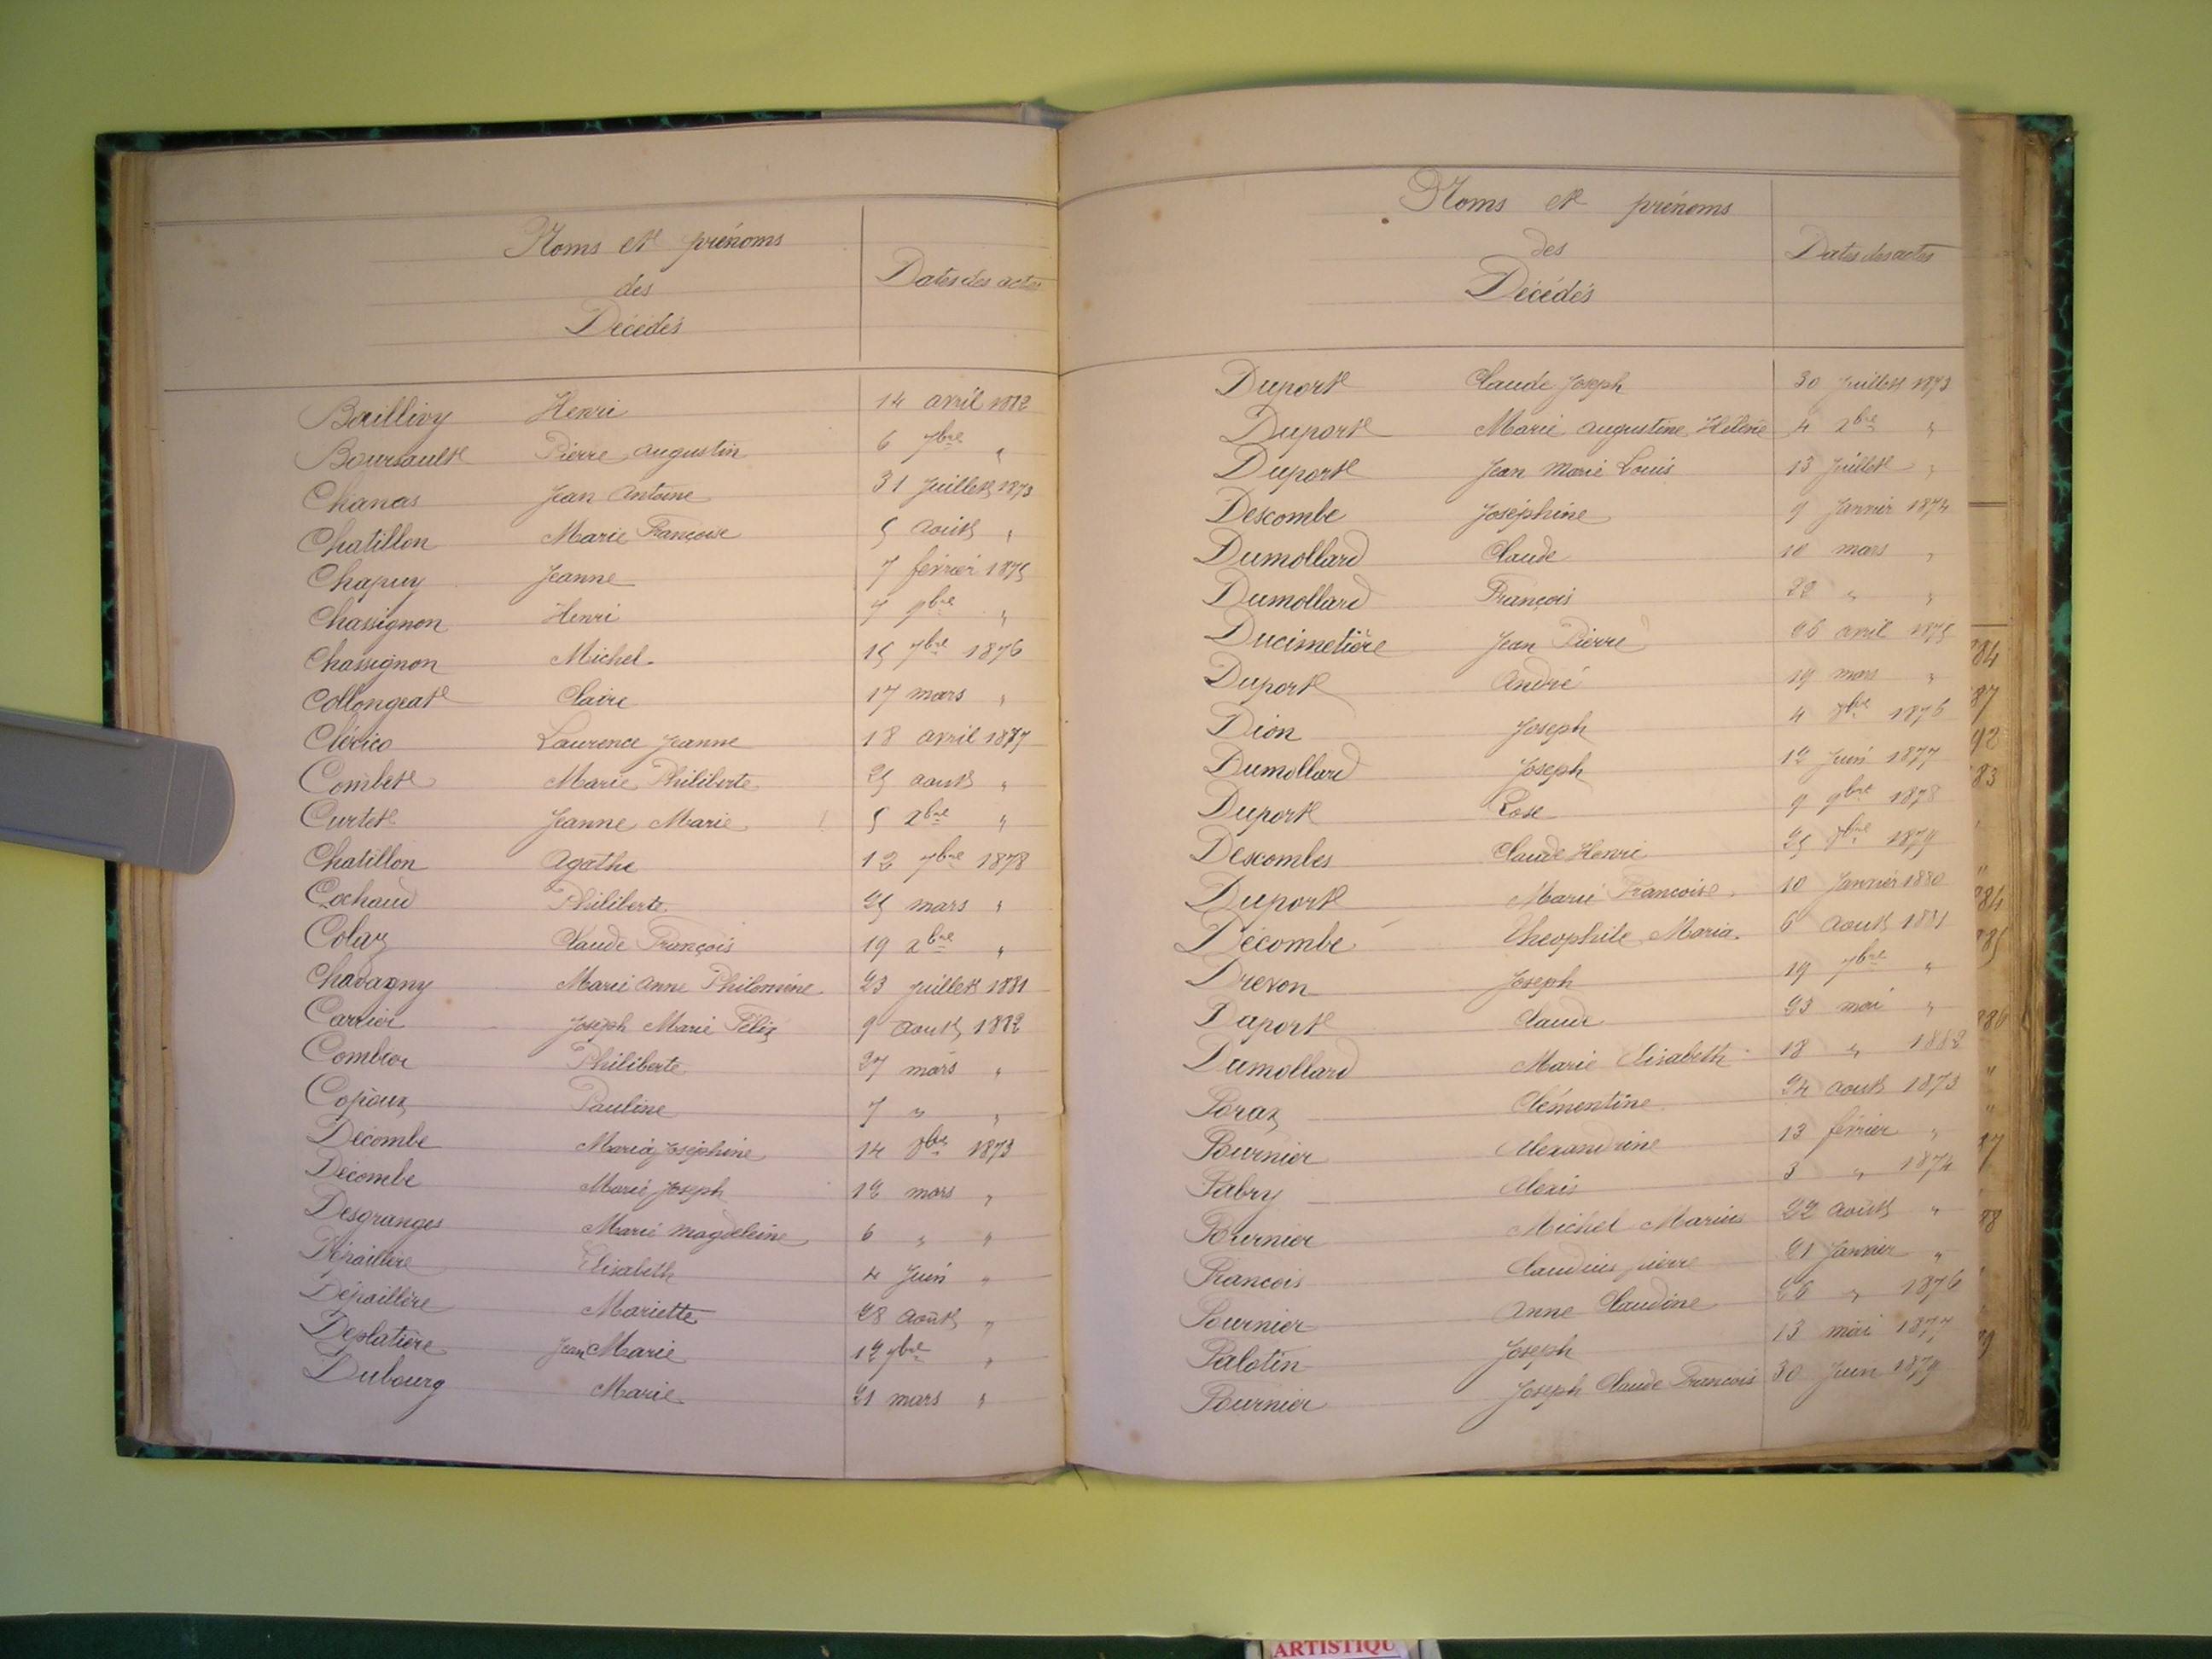 Noms et prénoms
des
Décédés
Dates des actes
Baillivy Henri 14 avril 1882
Boursault Pierre augustin 6 7bre "
Chanas Jean Antoine 31 Juillet 1873
Chatillon Marie Françoise 5 août "
Chapuy Jeanne 7 février 1875
Chassignon Henri 4 9bre "
Chassignon Michel 15 7bre 1876
Collongeat Claire 17 mars "
Clérico Laurence Jeanne 18 avril 1877
Combet Marie Philiberte 25 aout "
Curtet Jeanne Marie 5 xbre "
Chatillon Agathe 12 7bre 1878
Cochaud Philiberte 25 mars "
Colaz Claude François 19 xbre "
Chavagny Marie Anne Philomène 23 Juillet 1881
Carrier Joseph Marie Félix 9 aout 1882
Combior Philiberte 27 mars "
Copioux Pauline 7 " "
Décombe Maria Joséphine 14 8bre 1873
Décombe Marie Joseph 12 mars "
Desgranges Marie Magdeleine 6 " "
Dépaillère Elisabeth 4 Juin "
Dépaillère Mariette 28 août "
Deplatière Jean Marie 12 9bre "
Dubourg Marie 21 mars "
Noms et prénoms
des
Décédés
Dates des actes
Duport Claude Joseph 30 Juillet 1873
Duport Marie Augustine Hélène 4 xbre "
Duport Jean Marie Louis 13 Juillet "
Descombe Joséphine 9 Janvier 1874
Dumollard Claude 10 mars "
Dumollard François 22 " "
Ducimetière Jean Pierre 26 avril 1875
Duport André 19 mars "
Dion Joseph 4 8bre 1876
Dumollard Joseph 12 Juin 1877
Duport Rose 9 9bre 1878
Descombes Claude Henri 25 7bre 1879
Duport Marie Françoise 10 Janvier 1880
Décombe Théophile Maria 6 Aout 1881
Drevon Joseph 19 7bre "
Daport Claude 23 mai "
Dumollard Marie Elisabeth 18 " 1882
Foraz Clémentine 24 aout 1873
Fournier Alexandrine 13 février "
Fabry Alexis 3 " 1874
Fournier Michel Marius 22 août "
François Claudius pierre 21 Janvier "
Fournier Anne Claudine 26 " 1876
Falotin Joseph 13 mai 1877
Fournier Joseph Claude François 30 Juin 1879
ARTISTIQU